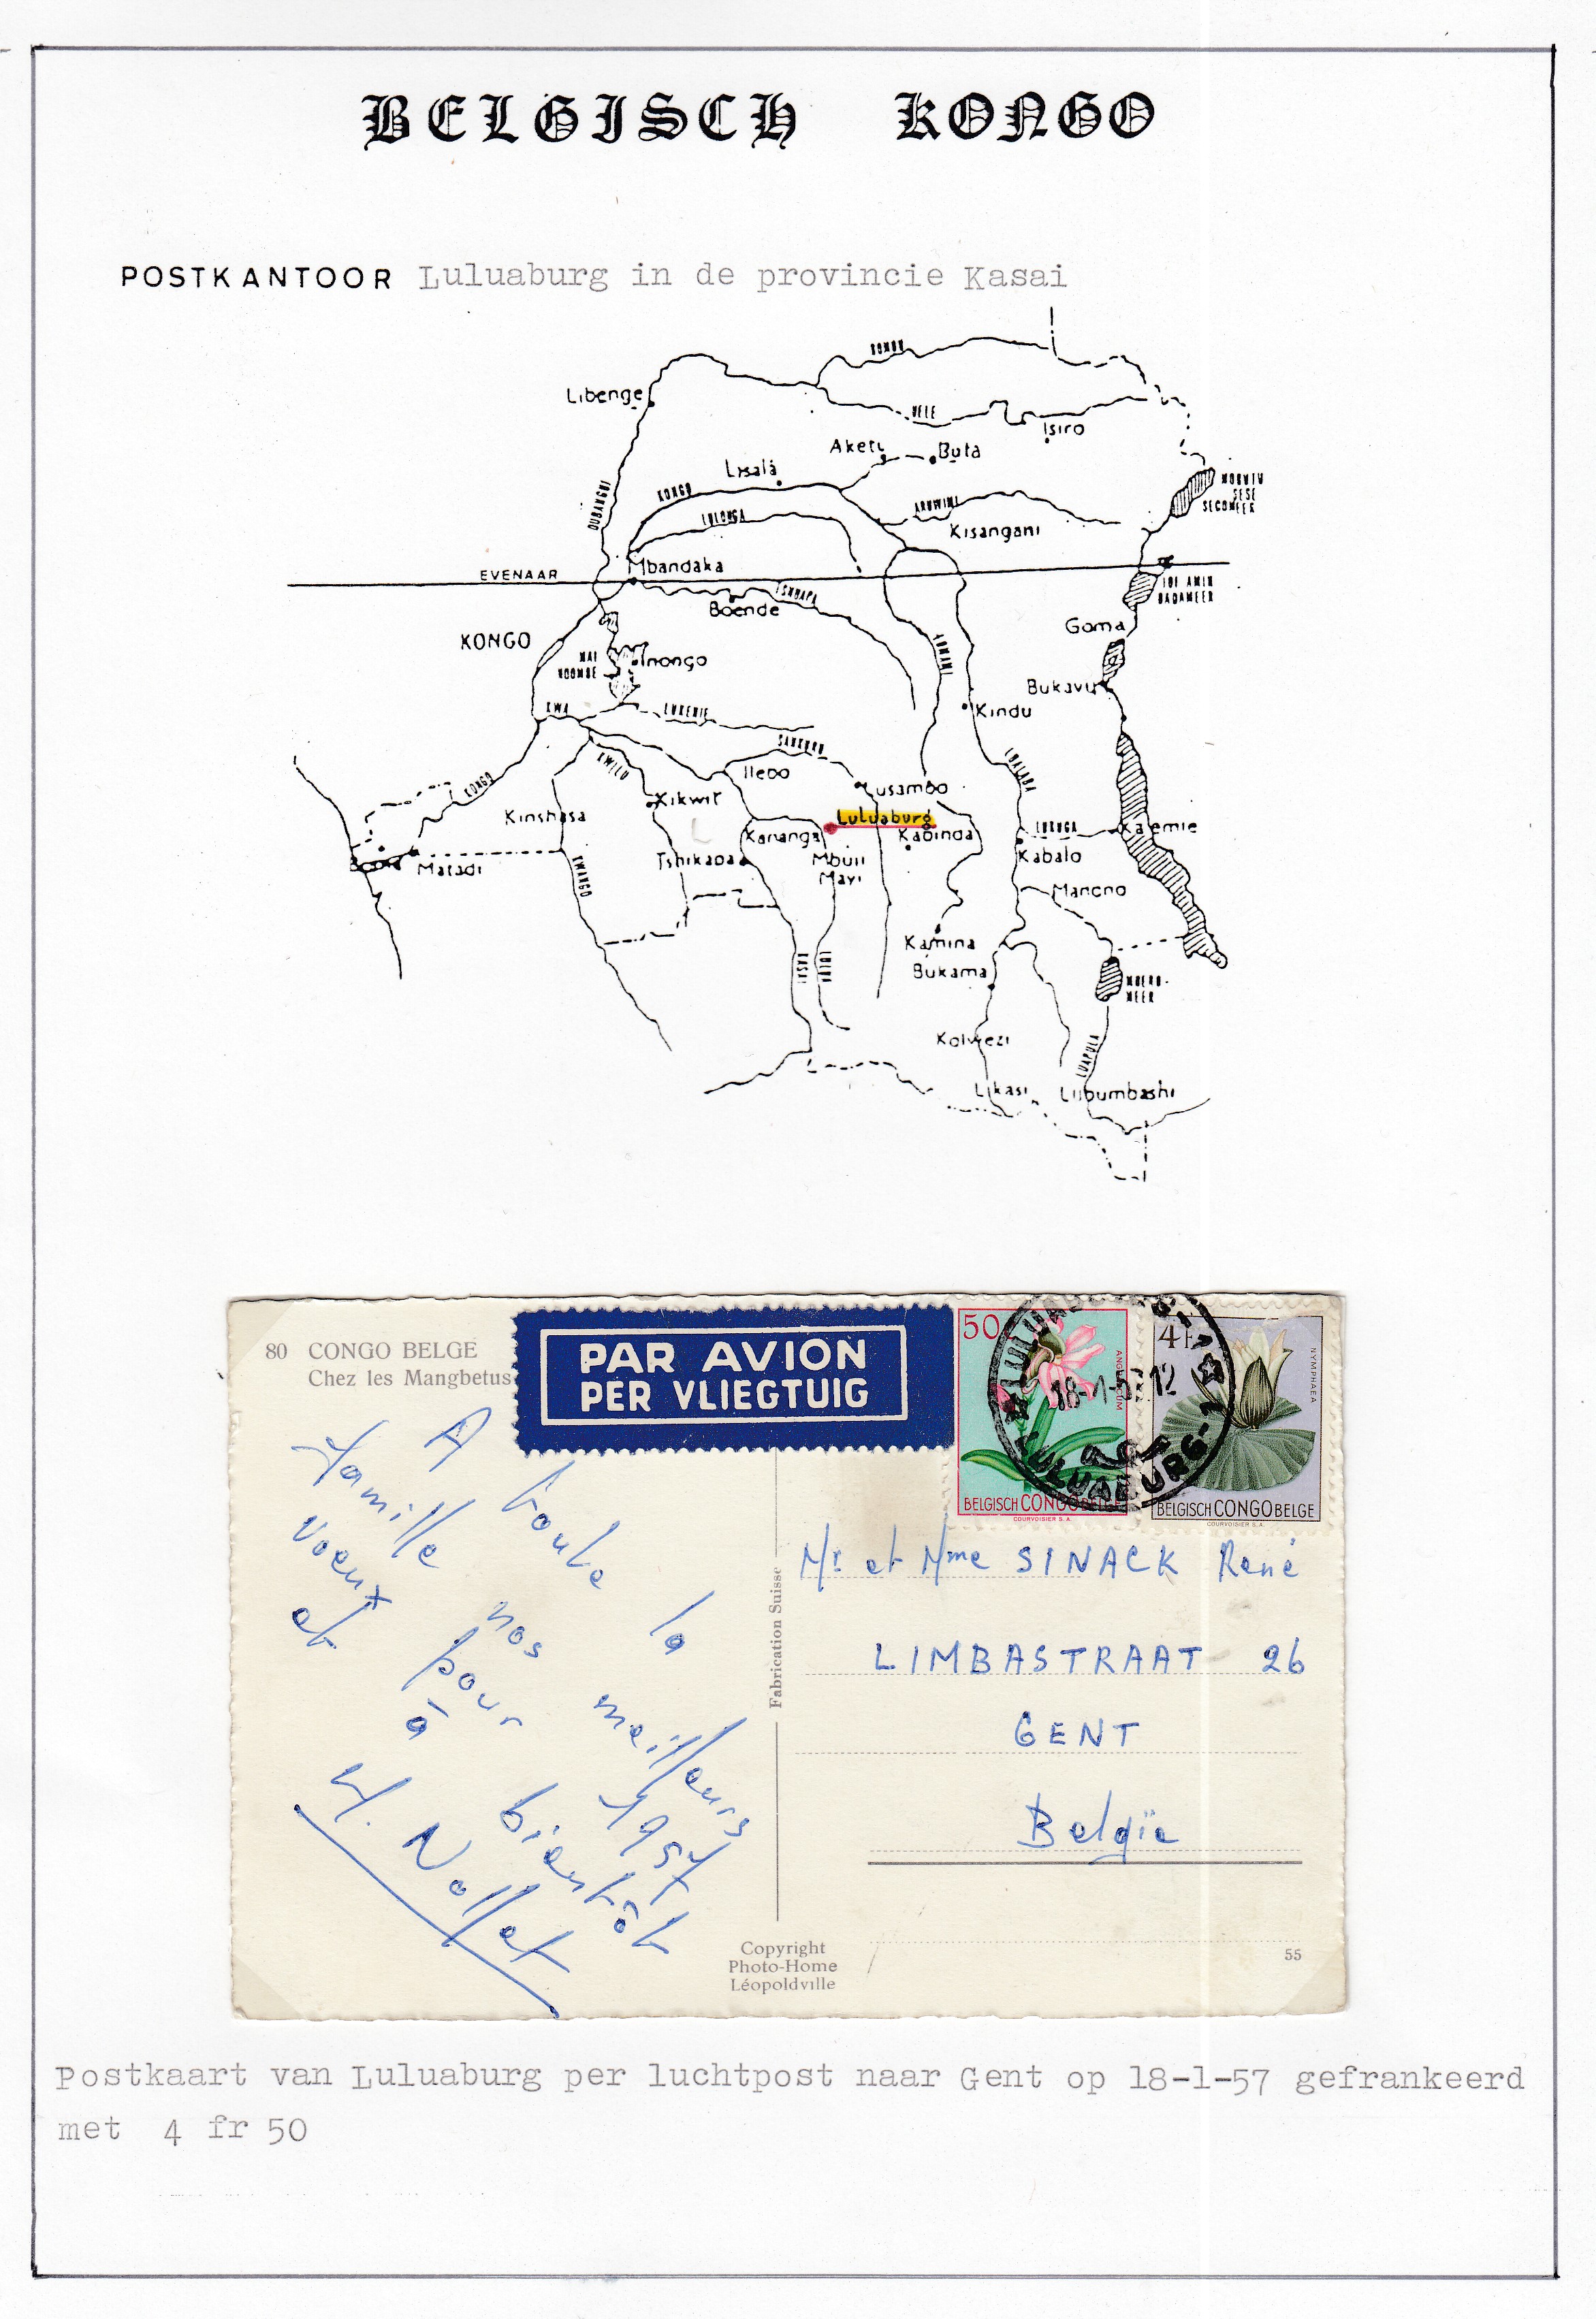 BELGISCH KONGO
POSTKANTOOR Luluaburg in de provincie Kasai
BOMOU
Libenge
UELE
Isiro
Aketi
Buta
Lisala
KONGO
OUBANGUI
LULONGA
ARUWIMI
MOBUTU
SESE
SECOMEER
Kisangani
Mbandaka
EVENAAR
TSHUAPA
IDI AMIN
DADAMEER
Boende
Goma
KONGO
MAI
NDOMBE
Inongo
LOMAMI
Bukavu
KWA
LUKENIE
Kindu
SANKURU
KWILU
Ilebo
LUALABA
KONGO
Lusambo
Kikwit
Kinshasa
Luluaburg
Kananga
Kabinda
LUKUGA
Kalemie
Boma
Matadi
Tshikapa
Mbuji
Mayi
Kabalo
KWANGO
Manono
Kamina
Bukama
KASAI
LULUA
MOERO-
MEER
Kolwezi
LUAPULA
Likasi
Lubumbashi
80 CONGO BELGE
Chez les Mangbetus
PAR AVION
PER VLIEGTUIG
50
ANGRAECUM
BELGISCH CONGO BELGE
COURVOISIER S. A.
4F
NYMPHAEA
BELGISCH CONGO BELGE
COURVOISIER S. A.
LULUABOURG-1
18-1-57 12
LULUABURG-1
A toute la
famille nos meilleurs
voeux pour 1957
et à bientôt
W. Nollet
Fabrication Suisse
Mr et Mme SINACK René
LIMBASTRAAT 26
GENT
Belgïe
Copyright
Photo-Home
Léopoldville
55
Postkaart van Luluaburg per luchtpost naar Gent op 18-1-57 gefrankeerd
met 4 fr 50